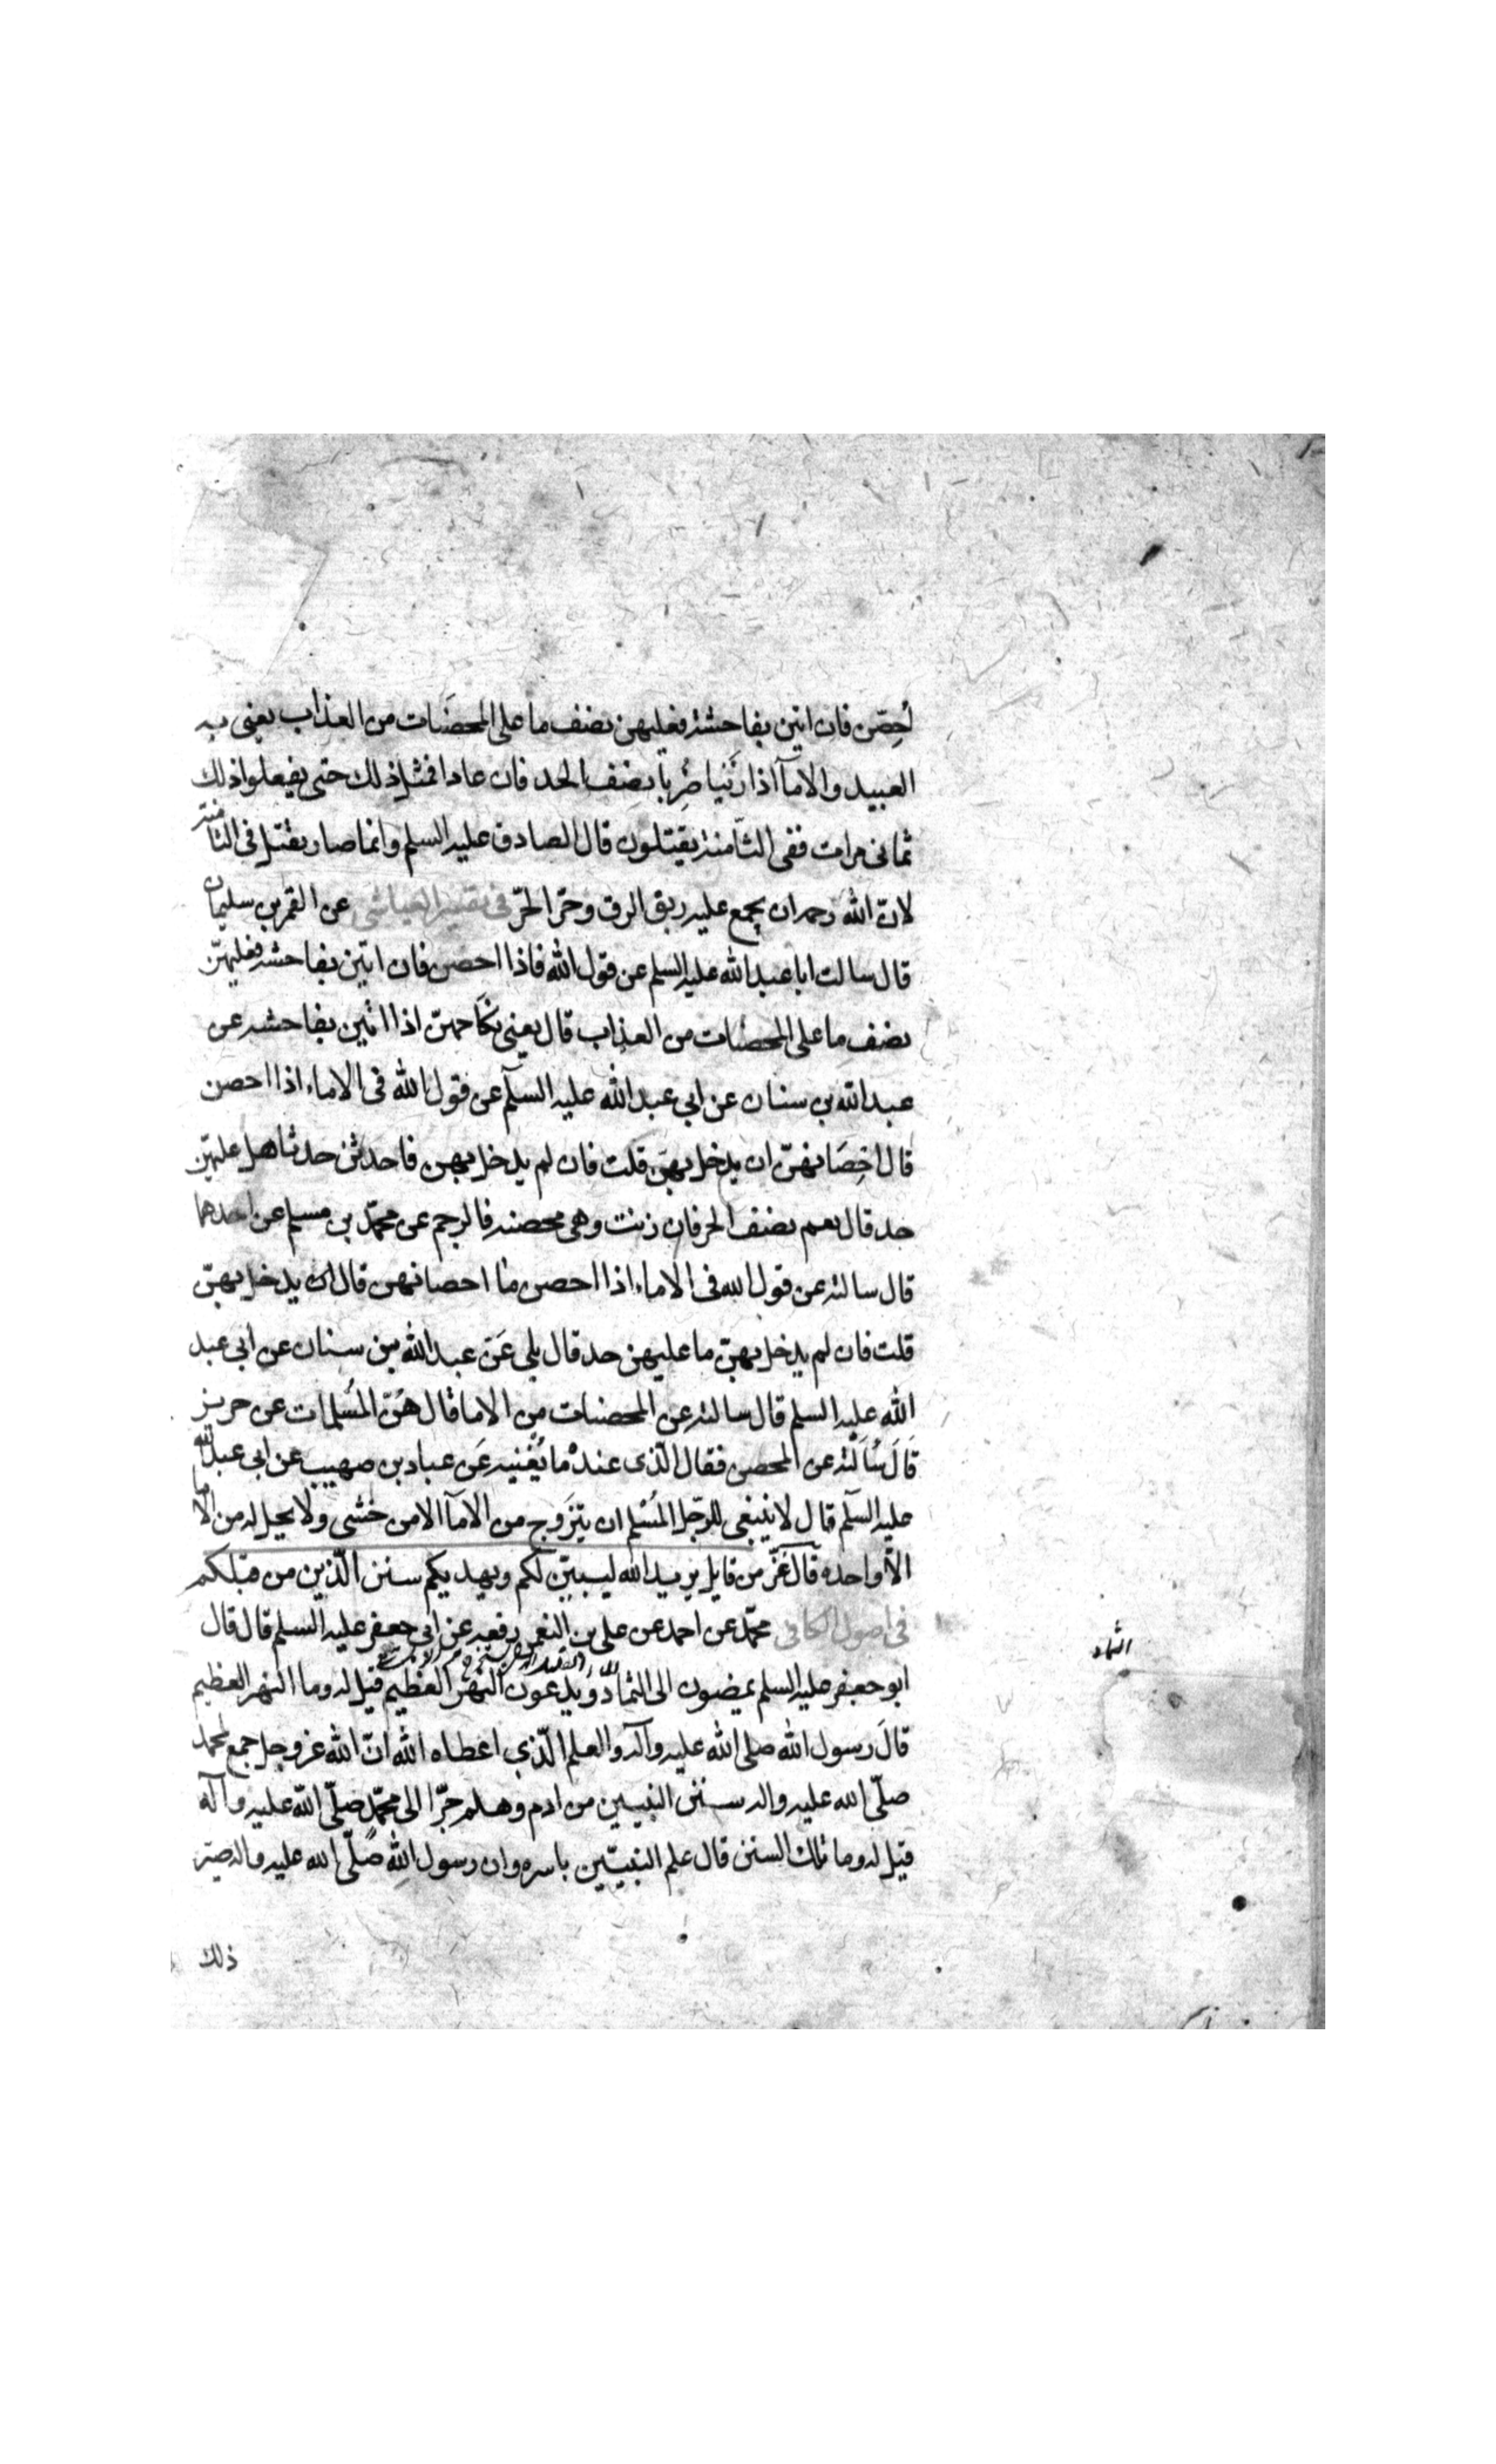 أحصن فان اتين بفاحشة فعليهن نصف ما على المحصنات من العذاب يعنى به
العبيد والامآ اذا زنيا ضربا نصف الحد فان عادا فمثل ذلك حتى يفعلوا ذلك
ثمانى مرات ففى الثامنة يقتلون قال الصادق عليه السلم وانما صار يقتل فى الثامنة
لانّ الله رحمه ان يجمع عليه ربق الرق وحدّ الحرّ فى تفسير العياشى عن القمر بن سليمان
قال سالت ابا عبد الله عليه السلم عن قول الله فاذا احصن فان اتين بفاحشه فعليهنّ
نصف ما على المحصنات من العذاب قال يعنى نكاحهنّ اذا اتين بفاحشه عن
عبد الله بن سنان عن ابى عبد الله عليه السلم عن قول الله فى الاماء اذا احصن
قال احصانهنّ ان يدخل بهنّ قلت فان لم يدخل بهن فاحدثن حدثا هل عليهنّ
حد قال نعم نصف الحر فان زنت وهى محصنه فالرجم عن محمّد بن مسلم عن احدهما
قال سالته عن قول الله فى الاماء اذا احصن ما احصانهن قال ان يدخل بهنّ
قلت فان لم يدخل بهنّ ما عليهن حد قال بلى عن عبد الله بن سنان عن ابى عبد
الله عليه السلم قال سالته عن المحصنات من الاما قال هنّ المسلمات عن حريز
قال سالته عن المحصن فقال الّذى عنده ما يغنيه عن عباد بن صهيب عن ابى عبد الله
عليه السلم قال لا ينبغى للرجل المسلم ان يتزوج من الامآ الا من خشى ولا يحل له من الاما
الّا واحده قال عزّ من قايل يريد الله ليبيّن لكم ويهديكم سنن الّذين من قبلكم
فى اصول الكافى محمّد عن احمد عن على بن النعمن رفعه عن ابى جعفر عليه السلم قال قال
ابو جعفر عليه السلم يمضون الى الثماد ويدعون النهر العظيم قيل له وما النهر العظيم
الثماد
قال رسول الله صلى الله عليه وآله والعلم الّذى اعطاه الله انّ الله عز وجل جمع لمحمد
صلّى الله عليه واله سنن النبيين من ادم وهلم جرّا الى محمّد صلّى الله عليه وآله
قيل له وما تلك السنن قال علم النبيّين باسره وان رسول الله صلّى الله عليه واله صيّر
ذلك